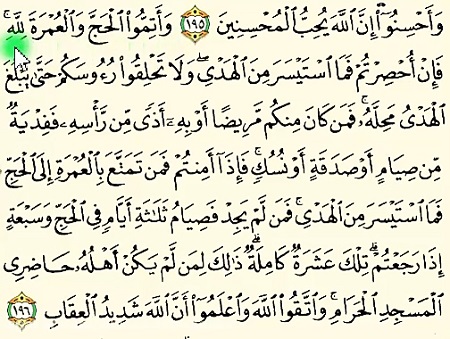 وَأَحْسِنُوٓا۟ إِنَّ ٱللَّهَ يُحِبُّ ٱلْمُحْسِنِينَ ١٩٥ وَأَتِمُّوا۟ ٱلْحَجَّ وَٱلْعُمْرَةَ لِلَّهِ ۚ
فَإِنْ أُحْصِرْتُمْ فَمَا ٱسْتَيْسَرَ مِنَ ٱلْهَدْىِ ۖ وَلَا تَحْلِقُوا۟ رُءُوسَكُمْ حَتَّىٰ يَبْلُغَ
ٱلْهَدْىُ مَحِلَّهُۥ ۚ فَمَن كَانَ مِنكُم مَّرِيضًا أَوْ بِهِۦٓ أَذًى مِّن رَّأْسِهِۦ فَفِدْيَةٌ
مِّن صِيَامٍ أَوْ صَدَقَةٍ أَوْ نُسُكٍ ۚ فَإِذَآ أَمِنتُمْ فَمَن تَمَتَّعَ بِٱلْعُمْرَةِ إِلَى ٱلْحَجِّ
فَمَا ٱسْتَيْسَرَ مِنَ ٱلْهَدْىِ ۚ فَمَن لَّمْ يَجِدْ فَصِيَامُ ثَلَـٰثَةِ أَيَّامٍ فِى ٱلْحَجِّ وَسَبْعَةٍ
إِذَا رَجَعْتُمْ ۗ تِلْكَ عَشَرَةٌ كَامِلَةٌ ۗ ذَٰلِكَ لِمَن لَّمْ يَكُنْ أَهْلُهُۥ حَاضِرِى
ٱلْمَسْجِدِ ٱلْحَرَامِ ۚ وَٱتَّقُوا۟ ٱللَّهَ وَٱعْلَمُوٓا۟ أَنَّ ٱللَّهَ شَدِيدُ ٱلْعِقَابِ ١٩٦